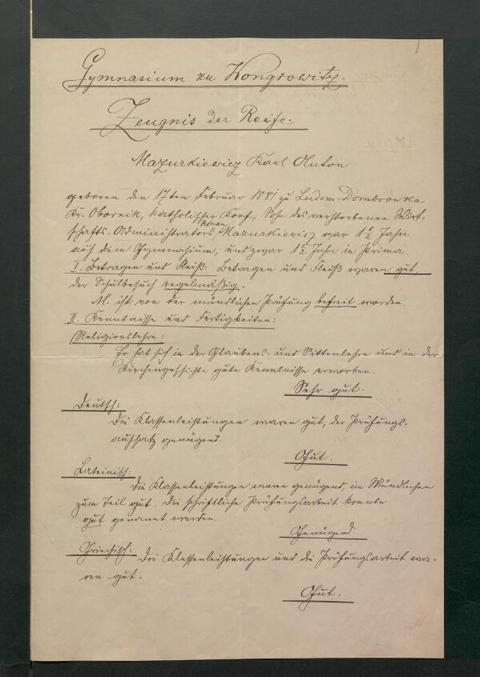 Gymnasium zu Wongrowitz.
Zeugnis der Reife.
Mazurkiewicz Karl Anton
geboren den 17ten Februar 1881 zu Ludom-Dombrowka
Kr. Obornik, katholischer Konf., Sohn des verstorbenen Wirt-
schafts-Administrators Roman Mazurkiewicz war 1½ Jahr
auf dem Gymnasium, und zwar 1½ Jahr in Prima.
I. Betragen und Fleiß: Betragen und Fleiß waren gut
der Schulbesuch regelmäßig.
M. ist von der mündlichen Prüfung befreit worden
II. Kenntnisse und Fertigkeiten:
Religionslehre:
Er hat sich in der Glaubens- und Sittenlehre und in der
Kirchengeschichte gute Kenntnisse erworben.
Sehr gut.
Deutsch:
Die Klassenleistungen waren gut, der Prüfungs-
aufsatz genügend.
Gut.
Lateinisch:
Die Klassenleistungen waren genügend, im Mündlichen
zum Teil gut. Die schriftliche Prüfungsarbeit konnte
gut genannt werden.
Genügend.
Griechisch: Die Klassenleistungen und die Prüfungsarbeit wa-
ren gut.
Gut.